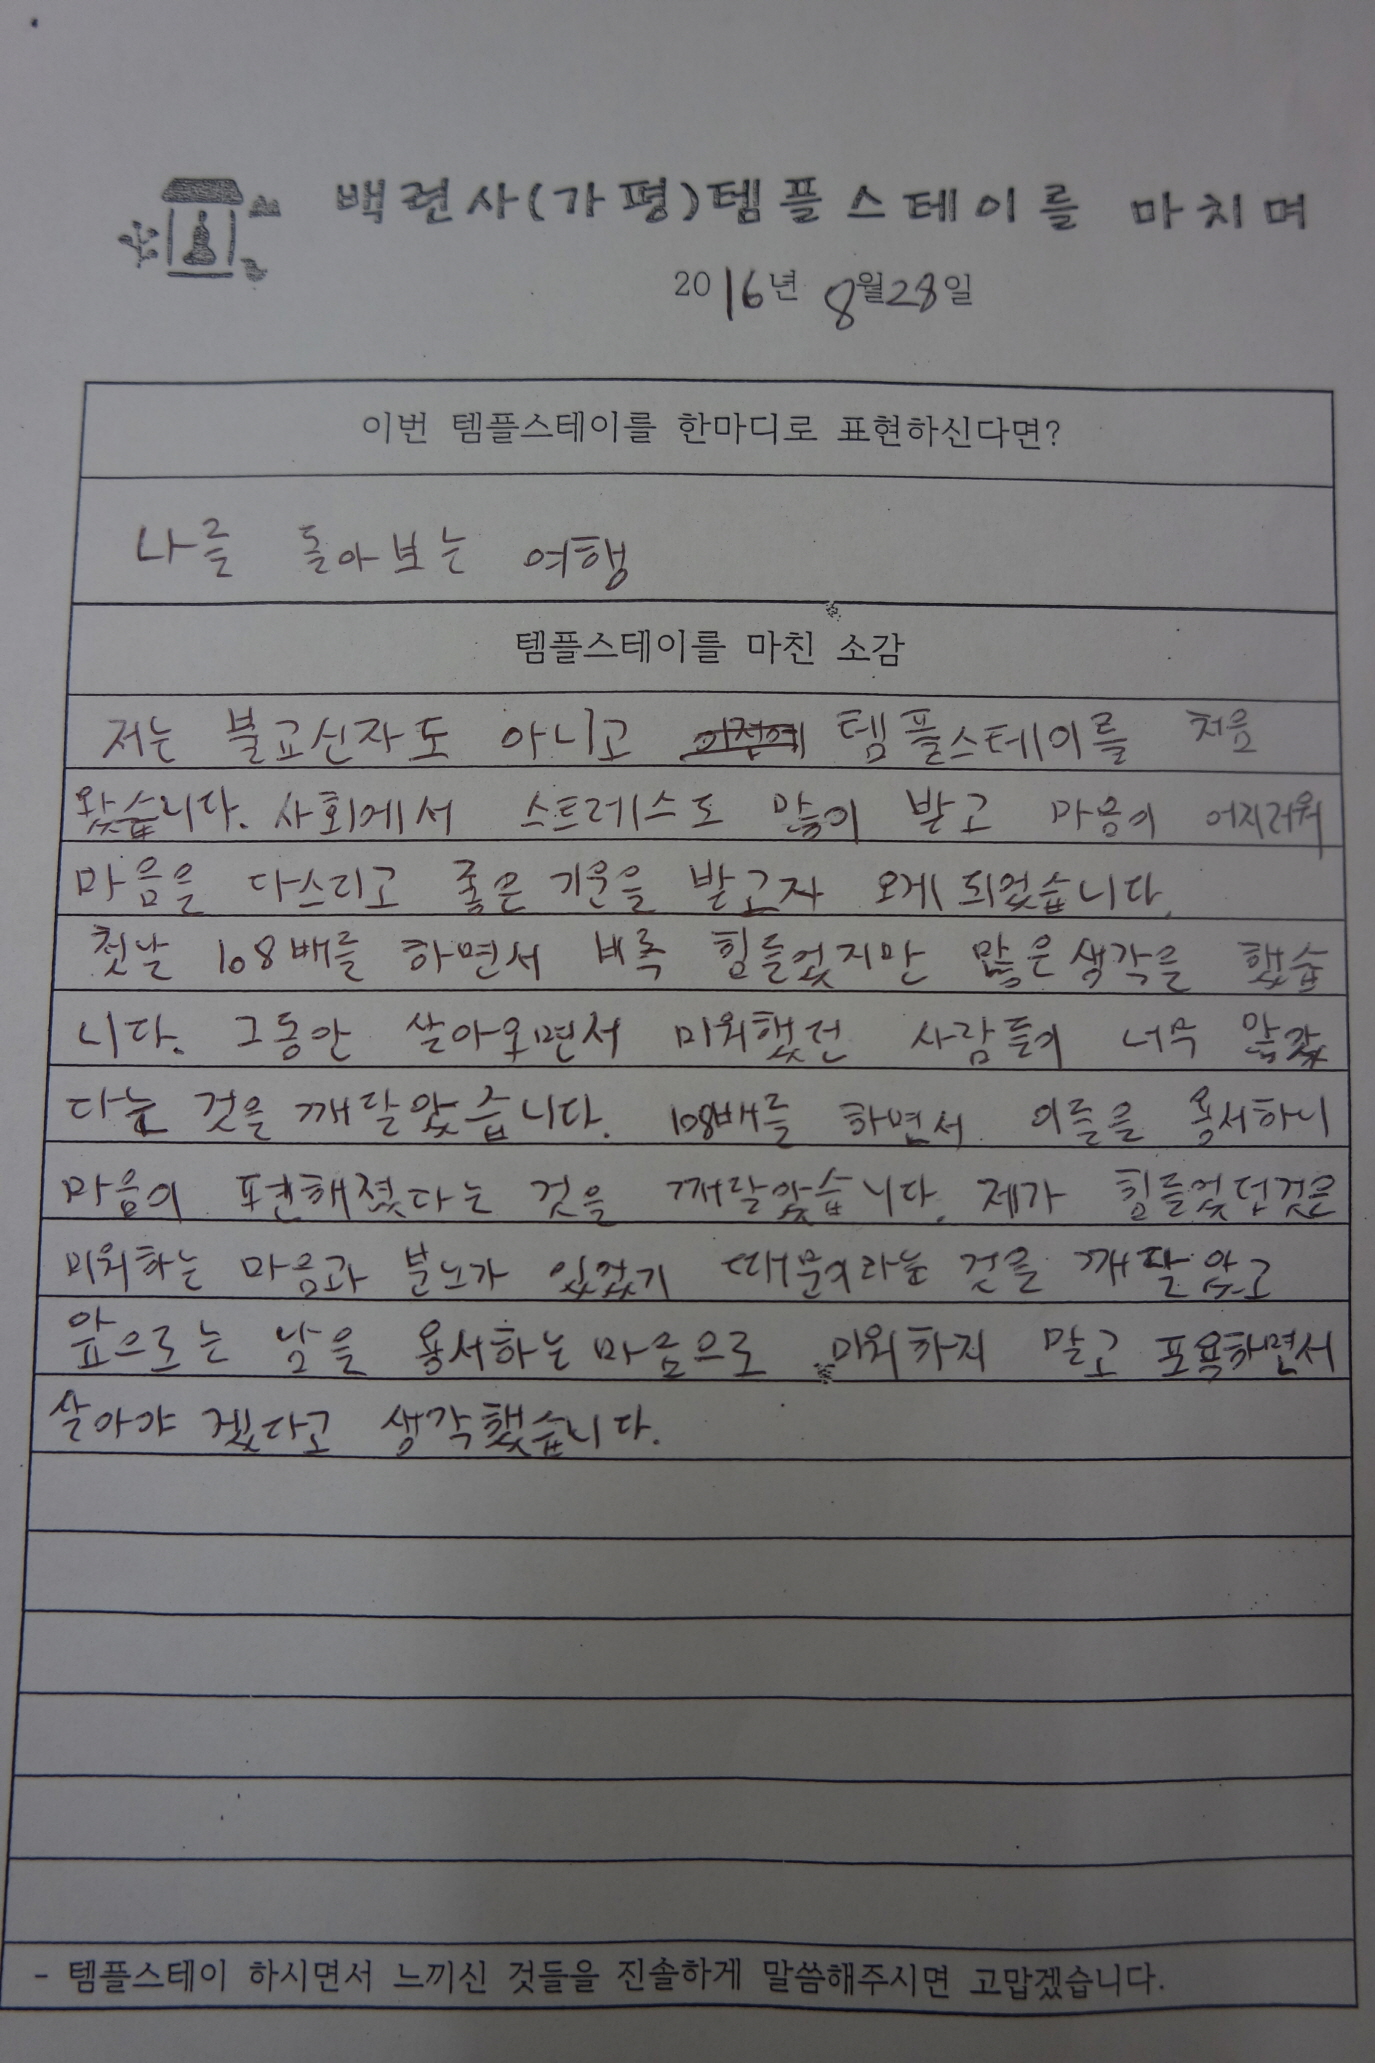 백련사(가평)템플스테이를 마치며
2016년 8월28일
이번 템플스테이를 한마디로 표현하신다면?
나를 돌아보는 여행
템플스테이를 마친 소감
저는 불교신자도 아니고 템플스테이를 처음
왔습니다. 사회에서 스트레스도 많이 받고 마음이 어지러워
마음을 다스리고 좋은 기운을 받고자 오게 되었습니다.
첫날 108배를 하면서 비록 힘들었지만 많은 생각을 했습
니다. 그동안 살아오면서 미워했던 사람들이 너무 많았
다는 것을 깨달았습니다. 108배를 하면서 이들을 용서하니
마음이 편해졌다는 것을 깨달았습니다. 제가 힘들었던것은
미워하는 마음과 분노가 있었기 때문이라는 것을 깨달았고
앞으로는 남을 용서하는 마음으로 미워하지 말고 포용하면서
살아야 겠다고 생각했습니다.
- 템플스테이 하시면서 느끼신 것들을 진솔하게 말씀해주시면 고맙겠습니다.